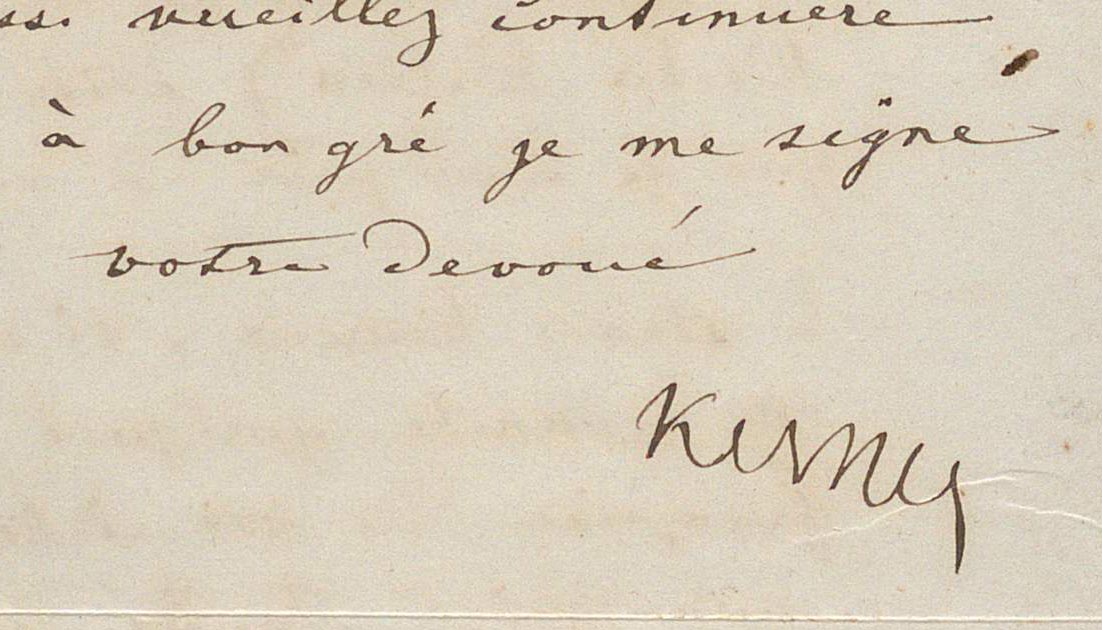 veuillez continuere
à bon gré je me signe
votre Devoué